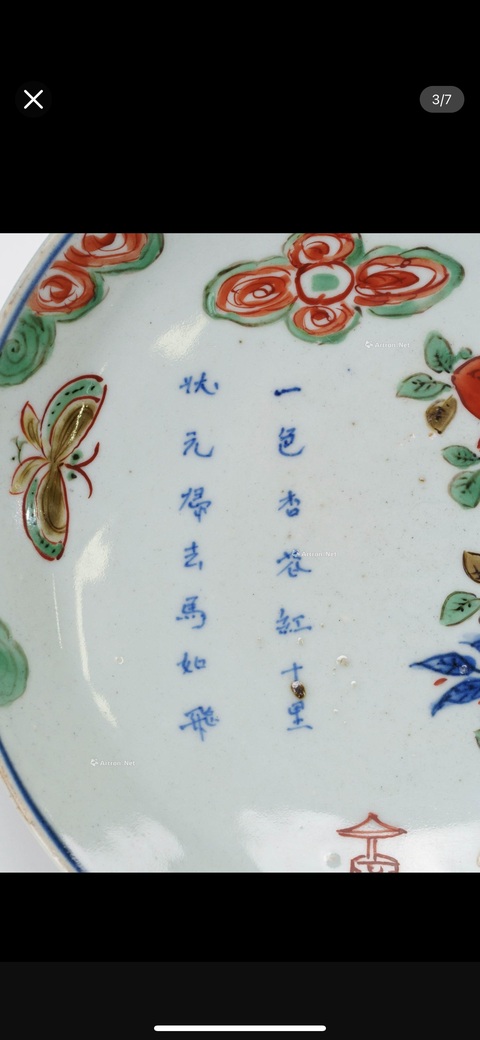 3/7
一色杏花紅十里
状元歸去馬如飛
Artron.Net
Artron.Net
Artron.Net